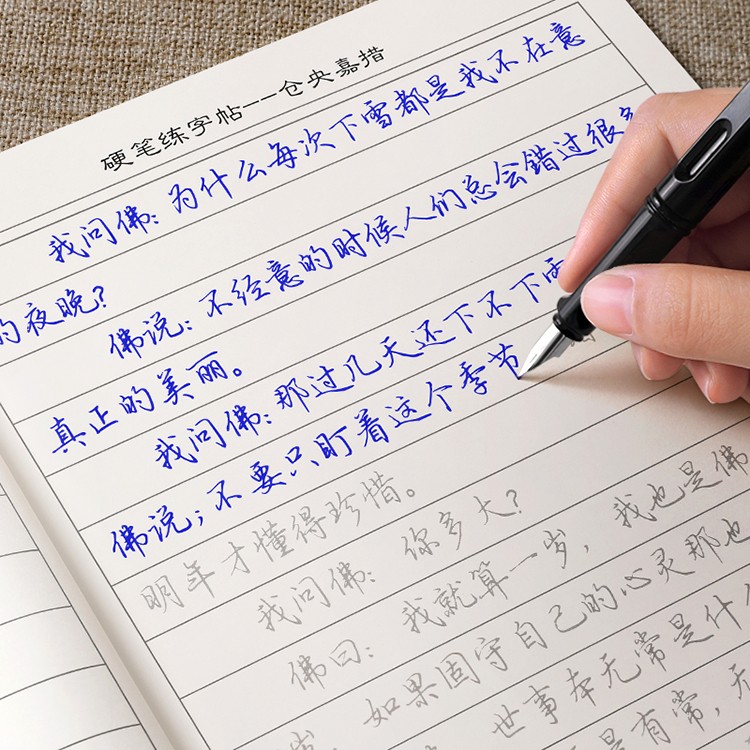 硬笔练字帖--仓央嘉措
我问佛:为什么每次下雪都是我不在意
的夜晚?
佛说:不经意的时候人们总会错过很多
真正的美丽。
我问佛:那过几天还下不下雪
佛说;不要只盯着这个季节
明年才懂得珍惜。
我问佛:你多大?
佛曰:我就算一岁,我也是佛
如果固守自己的心灵那也
世事本无常是什么
是有常,无